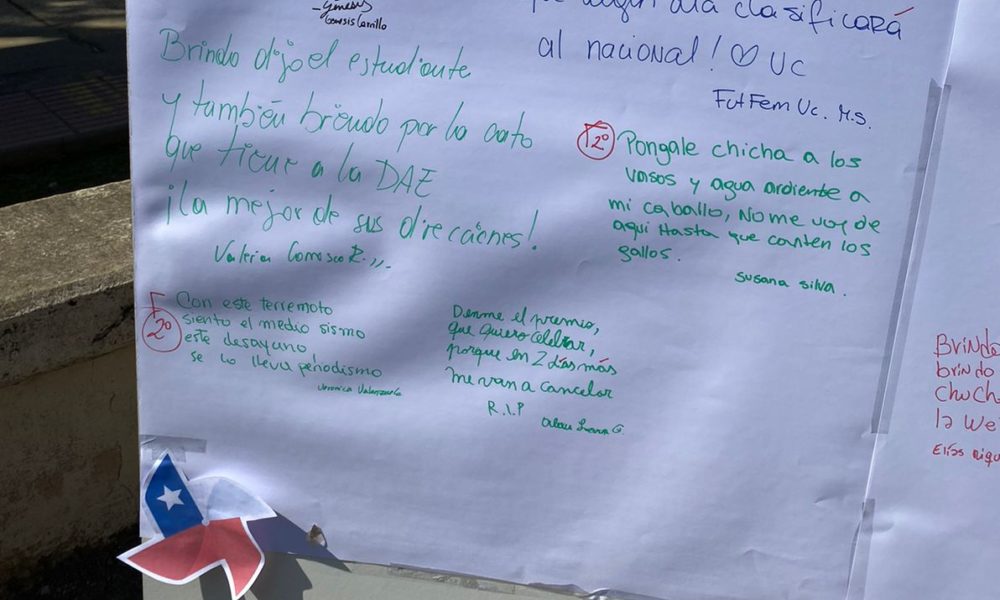 -Génesis
Génesis Carrillo
que algún día clasificará
al nacional! ♡ UC
FutFem Uc. M.S.
Brindo dijo el estudiante
y también brindo por lo
que tiene a la DAE
¡la mejor de sus direcciones!
Valeria Carrasco R.
2º
Pongale chicha a los
vasos y agua ardiente a
mi caballo, No me voy de
aqui Hasta que canten los
gallos.
Susana Silva.
2º
Con este terremoto
siento el medio sismo
este desayuno
se lo lleva periodismo
Veronica Valenzuela
Denme el premio,
que quiero celebrar,
porque en 2 días más
me van a cancelar
R.I.P
G.
Brindo
brindo
ChuCh
la We
Elías